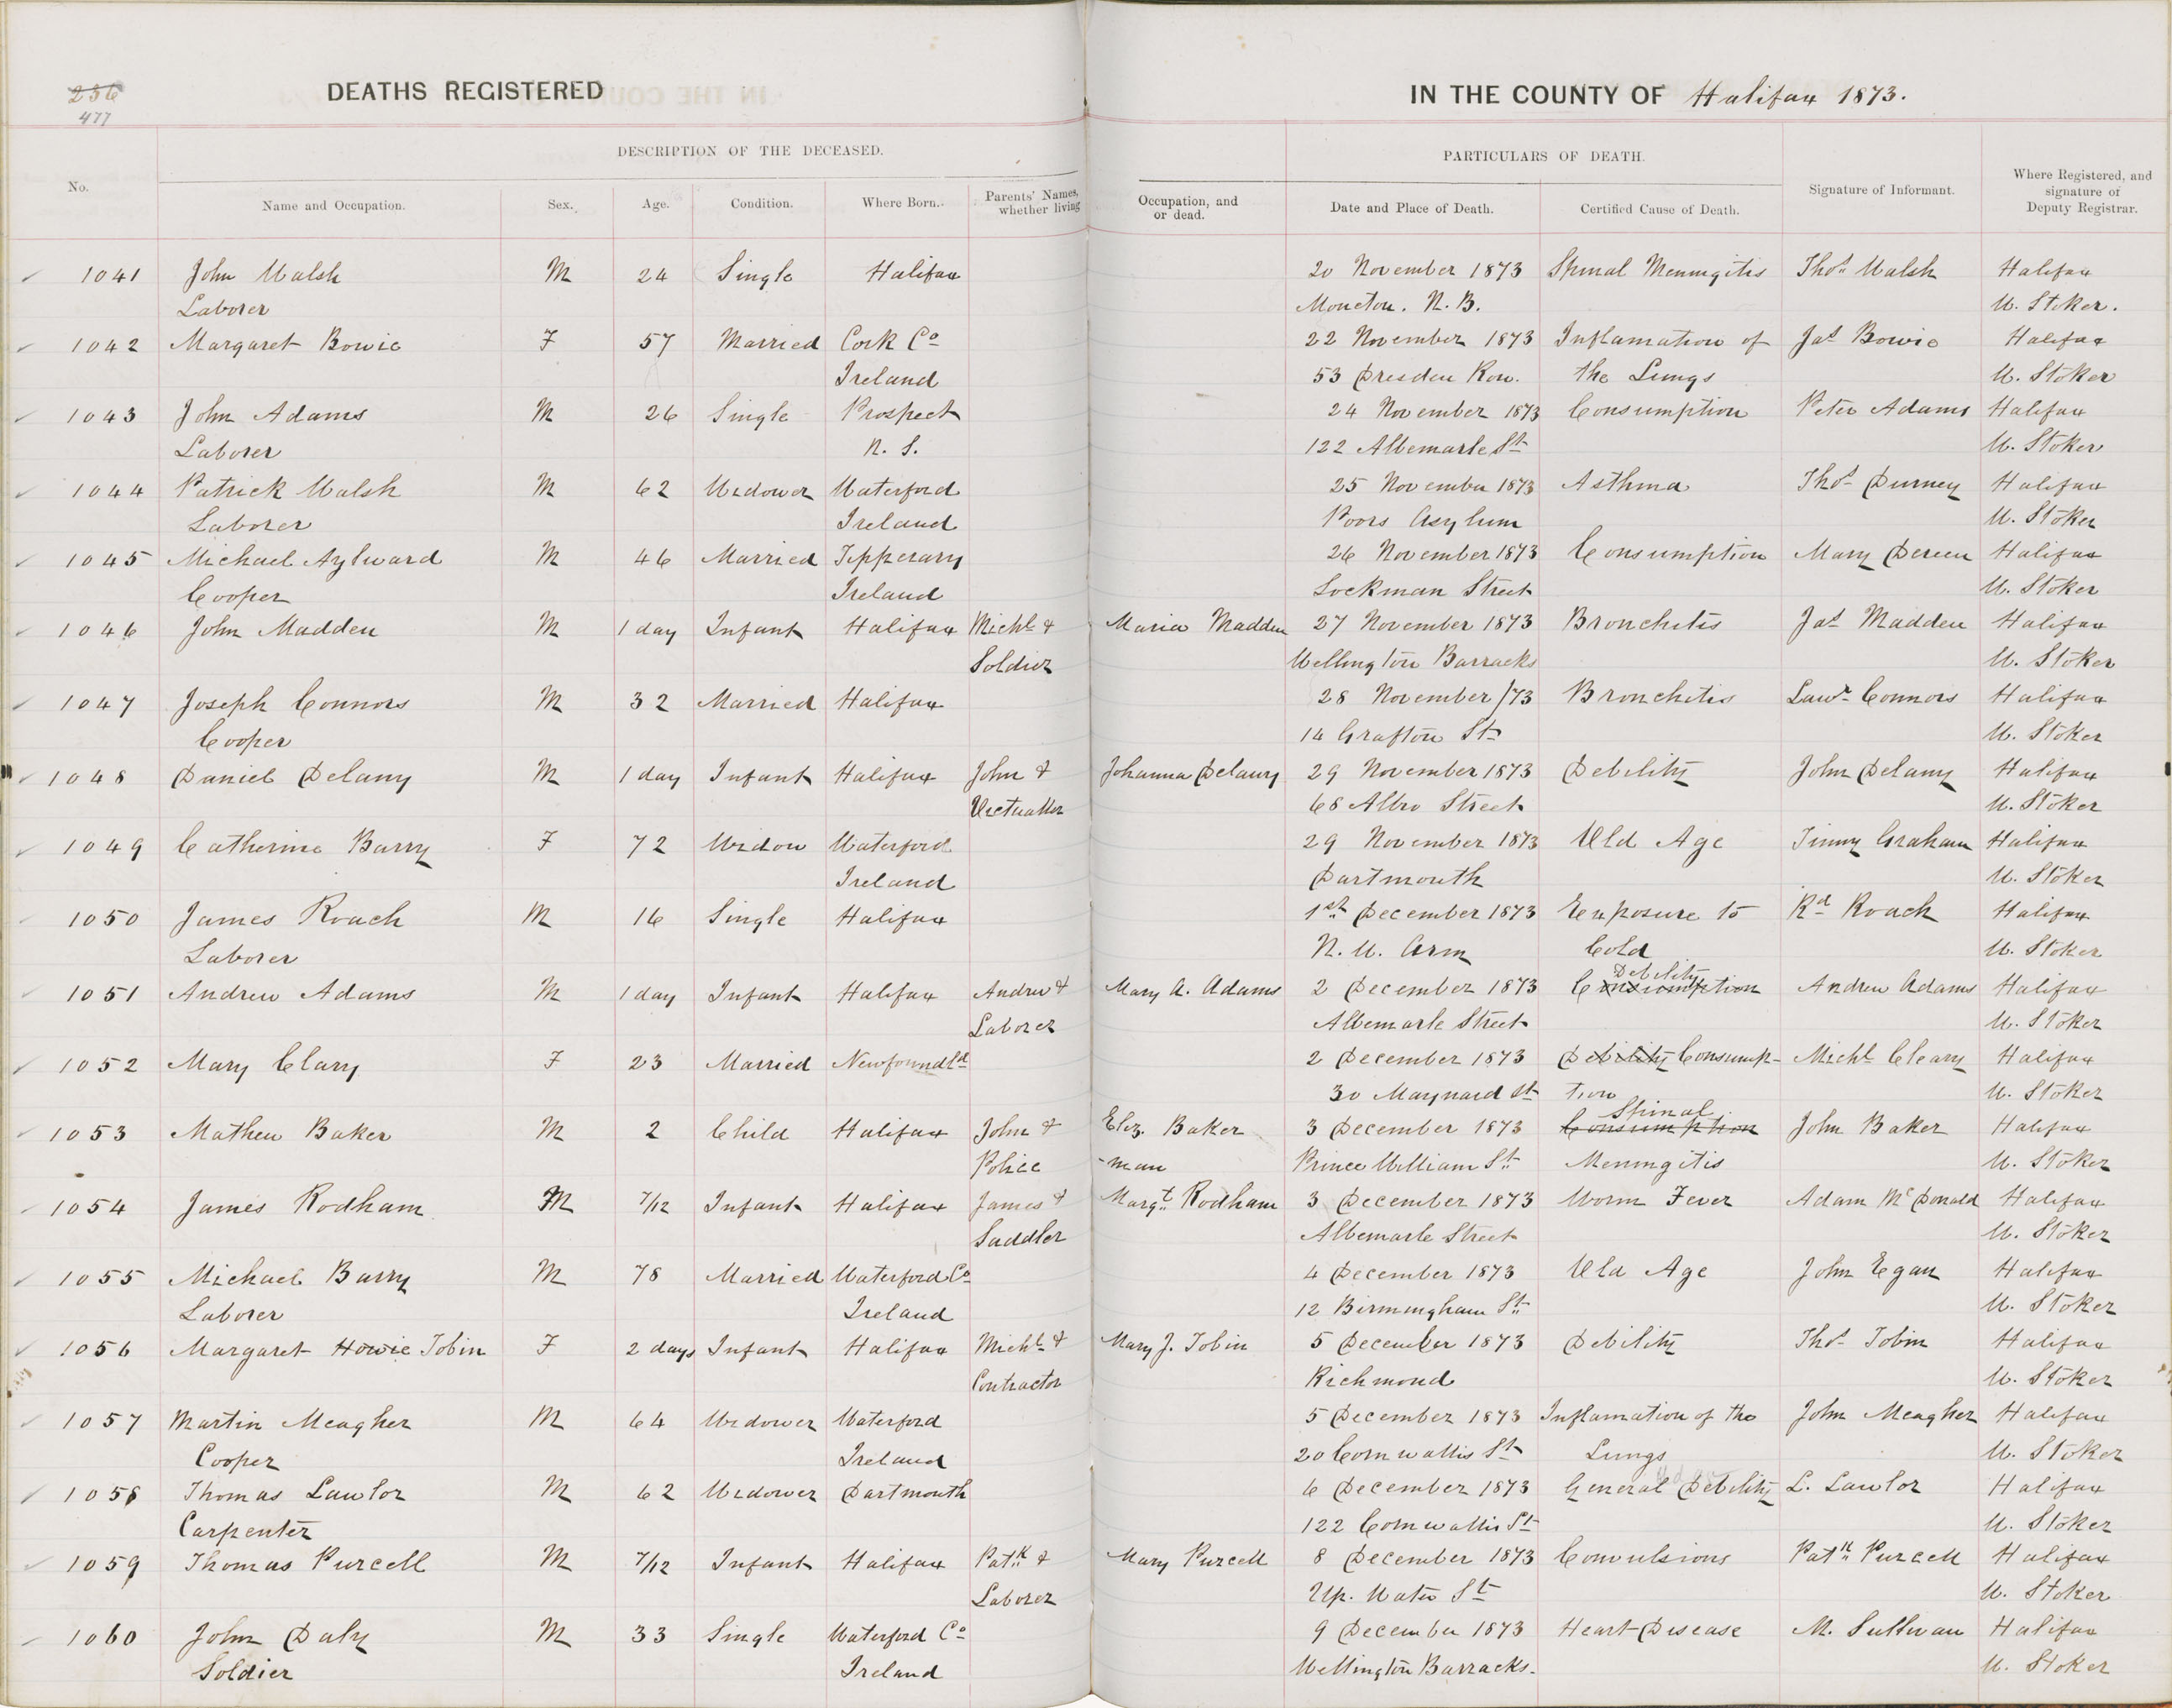 236
477
DEATHS REGISTERED
IN THE COUNTY OF Halifax 1873.
DESCRIPTION OF THE DECEASED.
PARTICULARS OF DEATH.
No. Name and Occupation. Sex. Age. Condition. Where Born. Parents' Names, whether living Occupation, and or dead. Date and Place of Death. Certified Cause of Death. Signature of Informant. Where Registered, and signature of Deputy Registrar.
1041 John Walsh M 24 Single Halifax 20 November 1873 Spinal Meningitis Thos Walsh Halifax
Laborer Moncton. N. B. W. Stoker.
1042 Margaret Bowie F 57 Married Cork Co 22 November 1873 Inflamation of Jas Bowie Halifax
Ireland 53 Dresden Row. the Lungs W. Stoker
1043 John Adams M 26 Single Prospect 24 November 1873 Consumption Peter Adams Halifax
Laborer N. S. 122 Albemarle St W. Stoker
1044 Patrick Walsh M 62 Widower Waterford 25 November 1873 Asthma Thos Durney Halifax
Laborer Ireland Poors Asylum W. Stoker
1045 Michael Aylward M 46 Married Tipperary 26 November 1873 Consumption Mary Dereen Halifax
Cooper Ireland Lockman Street W. Stoker
1046 John Madden M 1 day Infant Halifax Michl & Maria Madden 27 November 1873 Bronchitis Jas Madden Halifax
Soldier Wellington Barracks W. Stoker
1047 Joseph Connors M 32 Married Halifax 28 November /73 Bronchitis Lawr Connors Halifax
Cooper 14 Grafton St W. Stoker
1048 Daniel Delany M 1 day Infant Halifax John & Johanna Delany 29 November 1873 Debility John Delany Halifax
Victualler 68 Albro Street W. Stoker
1049 Catherine Barry F 72 Widow Waterford 29 November 1873 Old Age Jinny Graham Halifax
Ireland Dartmouth W. Stoker
1050 James Roach M 16 Single Halifax 1st December 1873 Exposure to Rd Roach Halifax
Laborer N. W. Arm Cold W. Stoker
Debility
1051 Andrew Adams M 1 day Infant Halifax Andrew & Mary A. Adams 2 December 1873 Consumption Andrew Adams Halifax
Laborer Albemarle Street W. Stoker
1052 Mary Clary F 23 Married Newfoundld 2 December 1873 Debility Consump- Michl Cleary Halifax
30 Maynard St tion W. Stoker
Spinal
1053 Mathew Baker M 2 Child Halifax John & Eliz. Baker 3 December 1873 Consumption John Baker Halifax
Police -man Prince William St Meningitis W. Stoker
1054 James Rodham M 7/12 Infant Halifax James & Margt Rodham 3 December 1873 Worm Fever Adam McDonald Halifax
Saddler Albemarle Street W. Stoker
1055 Michael Barry M 78 Married Waterford Co 4 December 1873 Old Age John Egan Halifax
Laborer Ireland 12 Birmingham St W. Stoker
1056 Margaret Howie Tobin F 2 days Infant Halifax Michl & Mary J. Tobin 5 December 1873 Debility Thos Tobin Halifax
Contractor Richmond W. Stoker
1057 Martin Meagher M 64 Widower Waterford 5 December 1873 Inflamation of the John Meagher Halifax
Cooper Ireland 20 Cornwallis St Lungs W. Stoker
1058 Thomas Lawlor M 62 Widower Dartmouth 6 December 1873 General Debility L. Lawlor Halifax
Carpenter 122 Cornwallis St W. Stoker
1059 Thomas Purcell M 7/12 Infant Halifax Patk & Mary Purcell 8 December 1873 Convulsions Patk Purcell Halifax
Laborer Up. Water St W. Stoker
1060 John Daly M 33 Single Waterford Co 9 December 1873 Heart Disease M. Sullivan Halifax
Soldier Ireland Wellington Barracks. W. Stoker